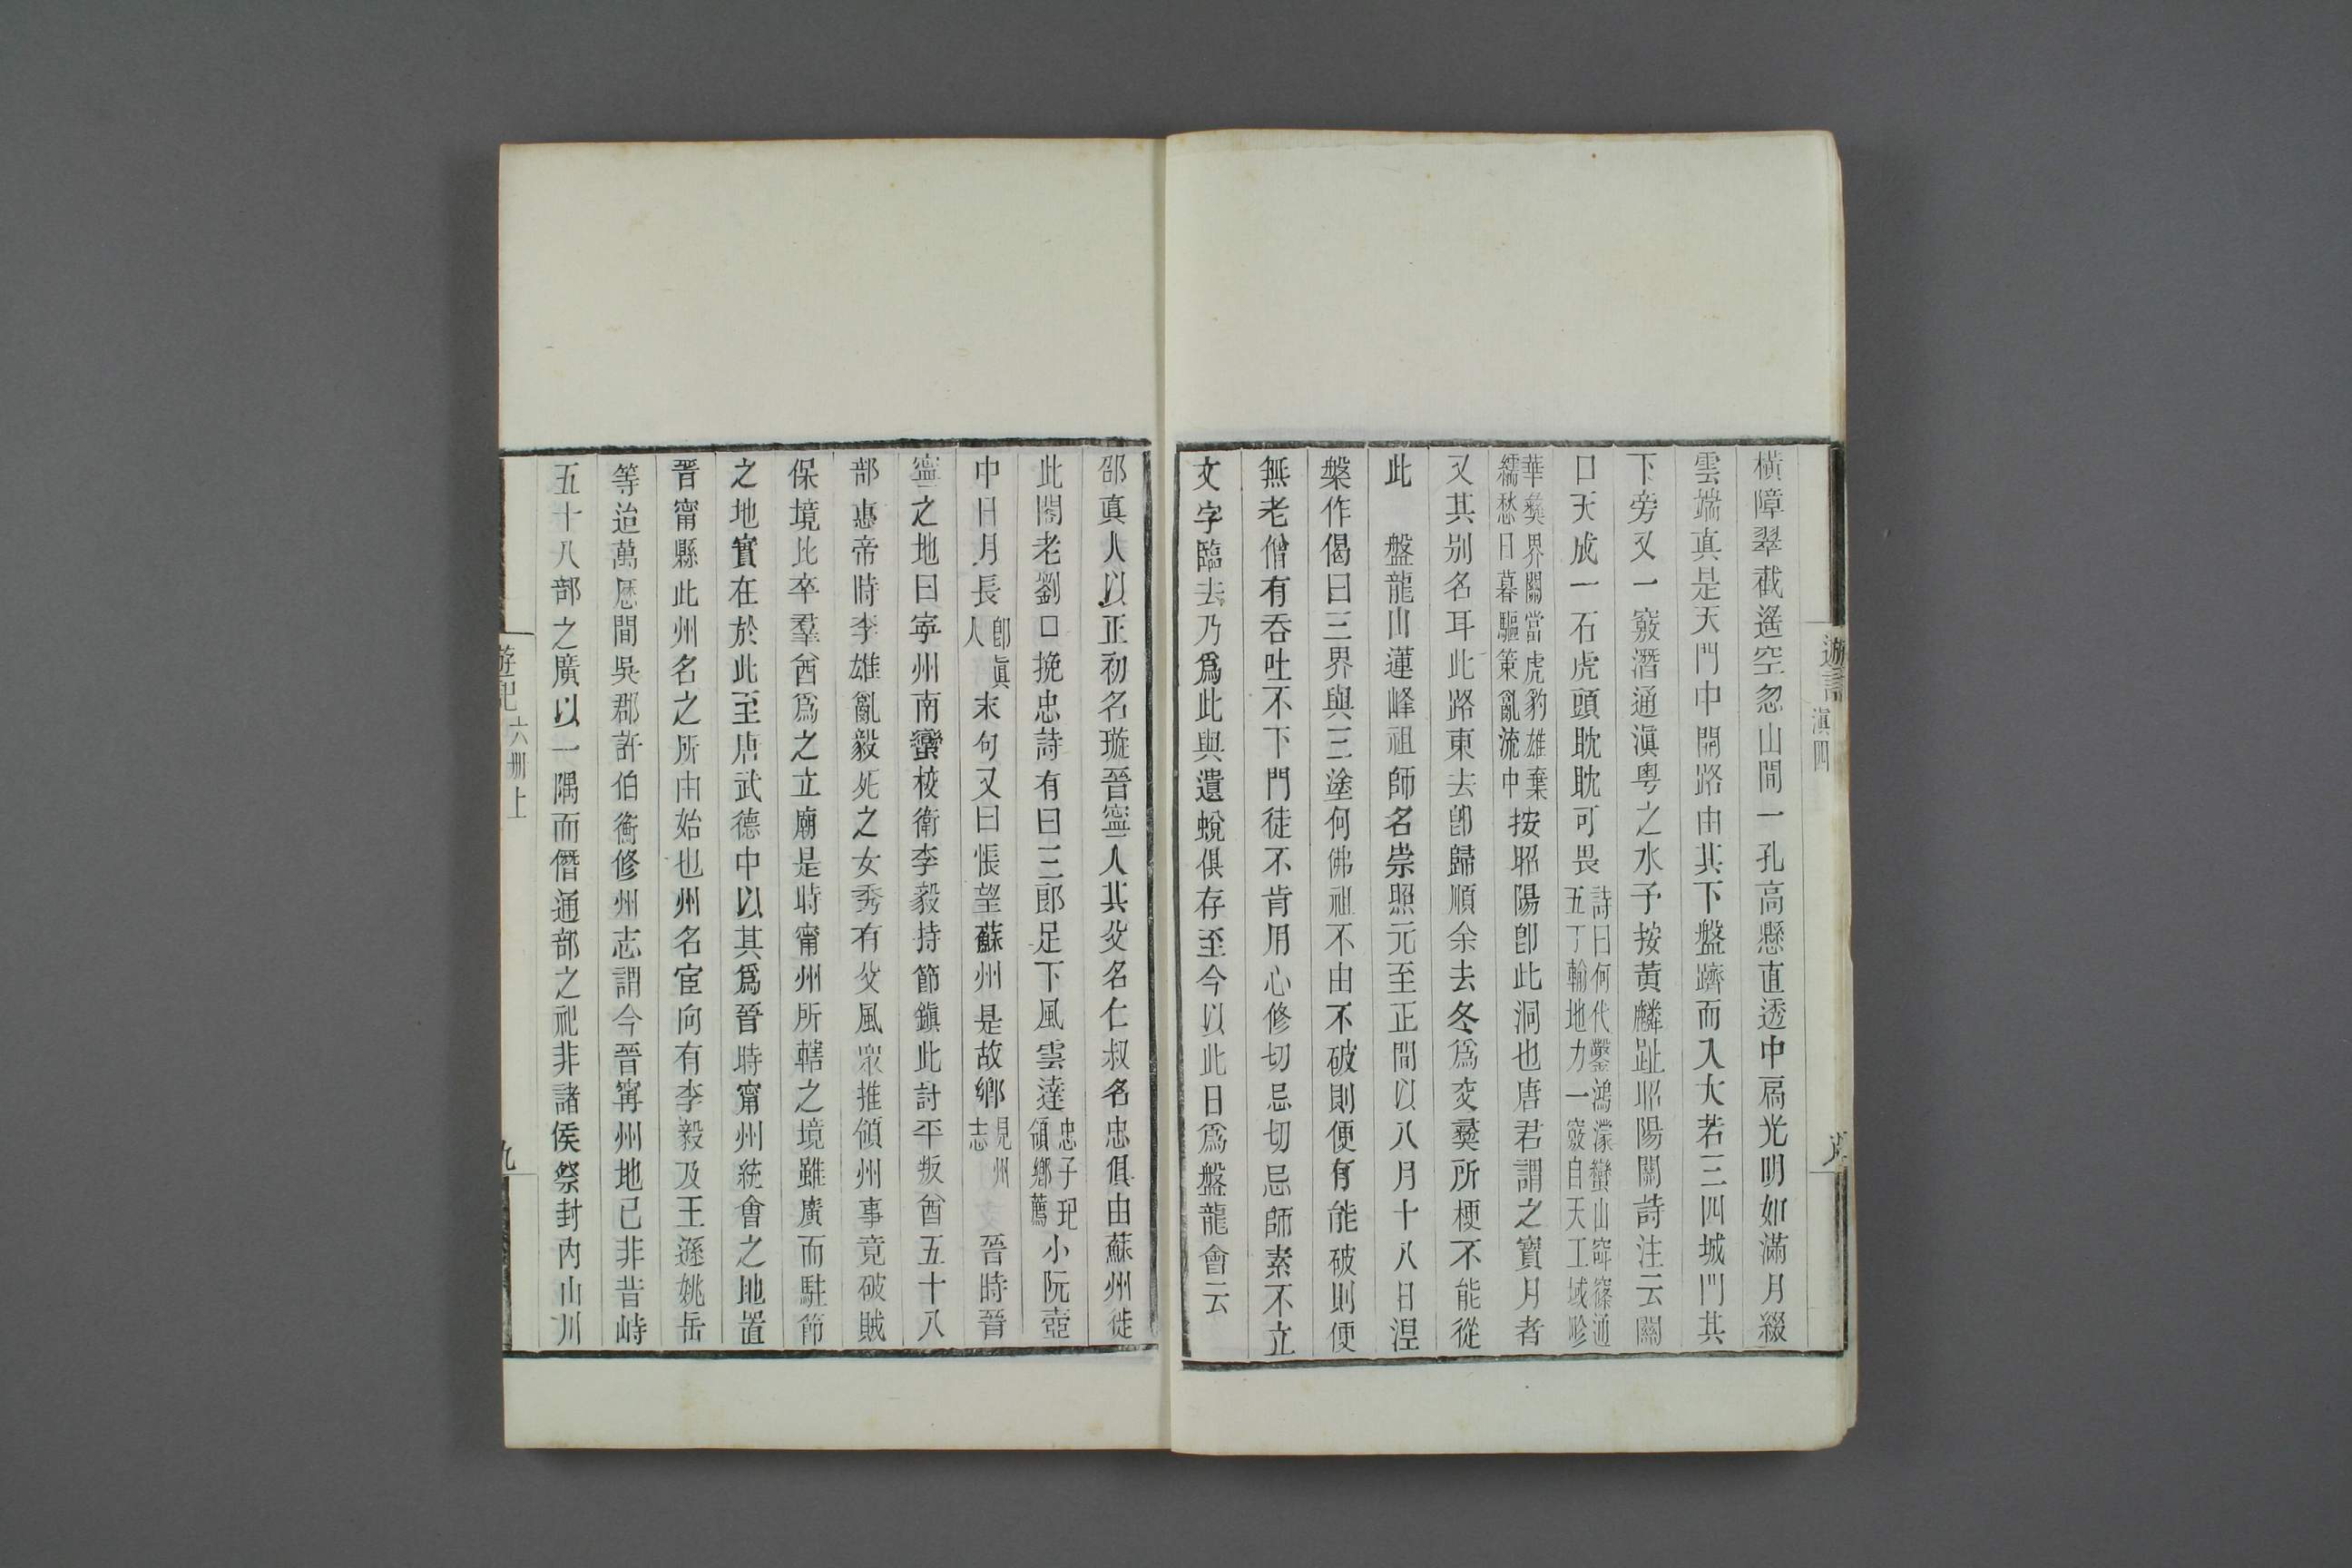 遊記 滇四
橫障翠截遙空忽山間一孔高懸直透中扄光明如滿月綴
雲端真是天門中開路由其下盤躋而入大若三四城門其
下旁又一竅潛通滇粵之水予按黃麟趾昭陽關詩注云關
口天成一石虎頭眈眈可畏詩曰何代鑿鴻濛蠻山窣窿通五丁輸地力一竅自天工域畛
華彜界關當虎豹雄棄繻愁日暮驅策亂流中按昭陽卽此洞也唐君謂之寳月者
又其别名耳此路東去卽歸順余去冬爲交彜所梗不能從
此 盤龍山蓮峰祖師名崇照元至正間以八月十八日涅
槃作偈曰三界與三塗何佛祖不由不破則便有能破則便
無老僧有吞吐不下門徒不肯用心修切忌切忌師素不立
文字臨去乃爲此與遺蛻俱存至今以此日爲盤龍會云
邵真人以正初名璇晉寧人其父名仁叔名忠俱由蘇州徙
此閣老劉口挽忠詩有曰三郎足下風雲達忠子玘領鄉薦小阮壺
中日月長卽眞人末句又曰悵望蘇州是故鄉見州志 晉時晉
寧之地曰寧州南蠻校衛李毅持節鎮此討平叛酋五十八
部惠帝時李雄亂毅死之女秀有父風眾推領州事竟破賊
保境比卒羣酋爲之立廟是時甯州所轄之境雖廣而駐節
之地實在於此至唐武德中以其爲晉時甯州統會之地置
晉甯縣此州名之所由始也州名宦向有李毅及王遜姚岳
等迨萬厯間吳郡許伯衡修州志謂今晉甯州地已非昔時
五十八部之廣以一隅而僭通部之祀非諸侯祭封內山川
遊記 六册上 九